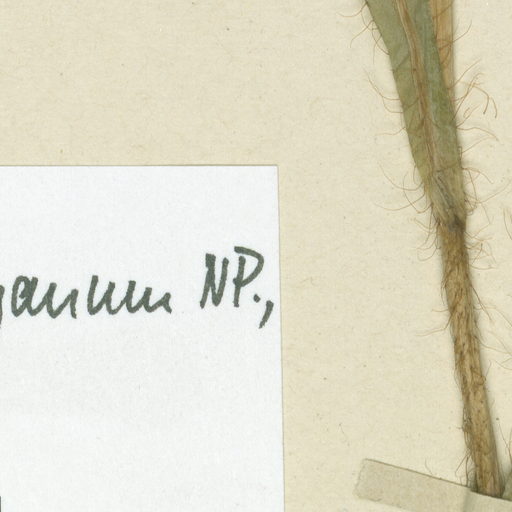 yanum NP.,